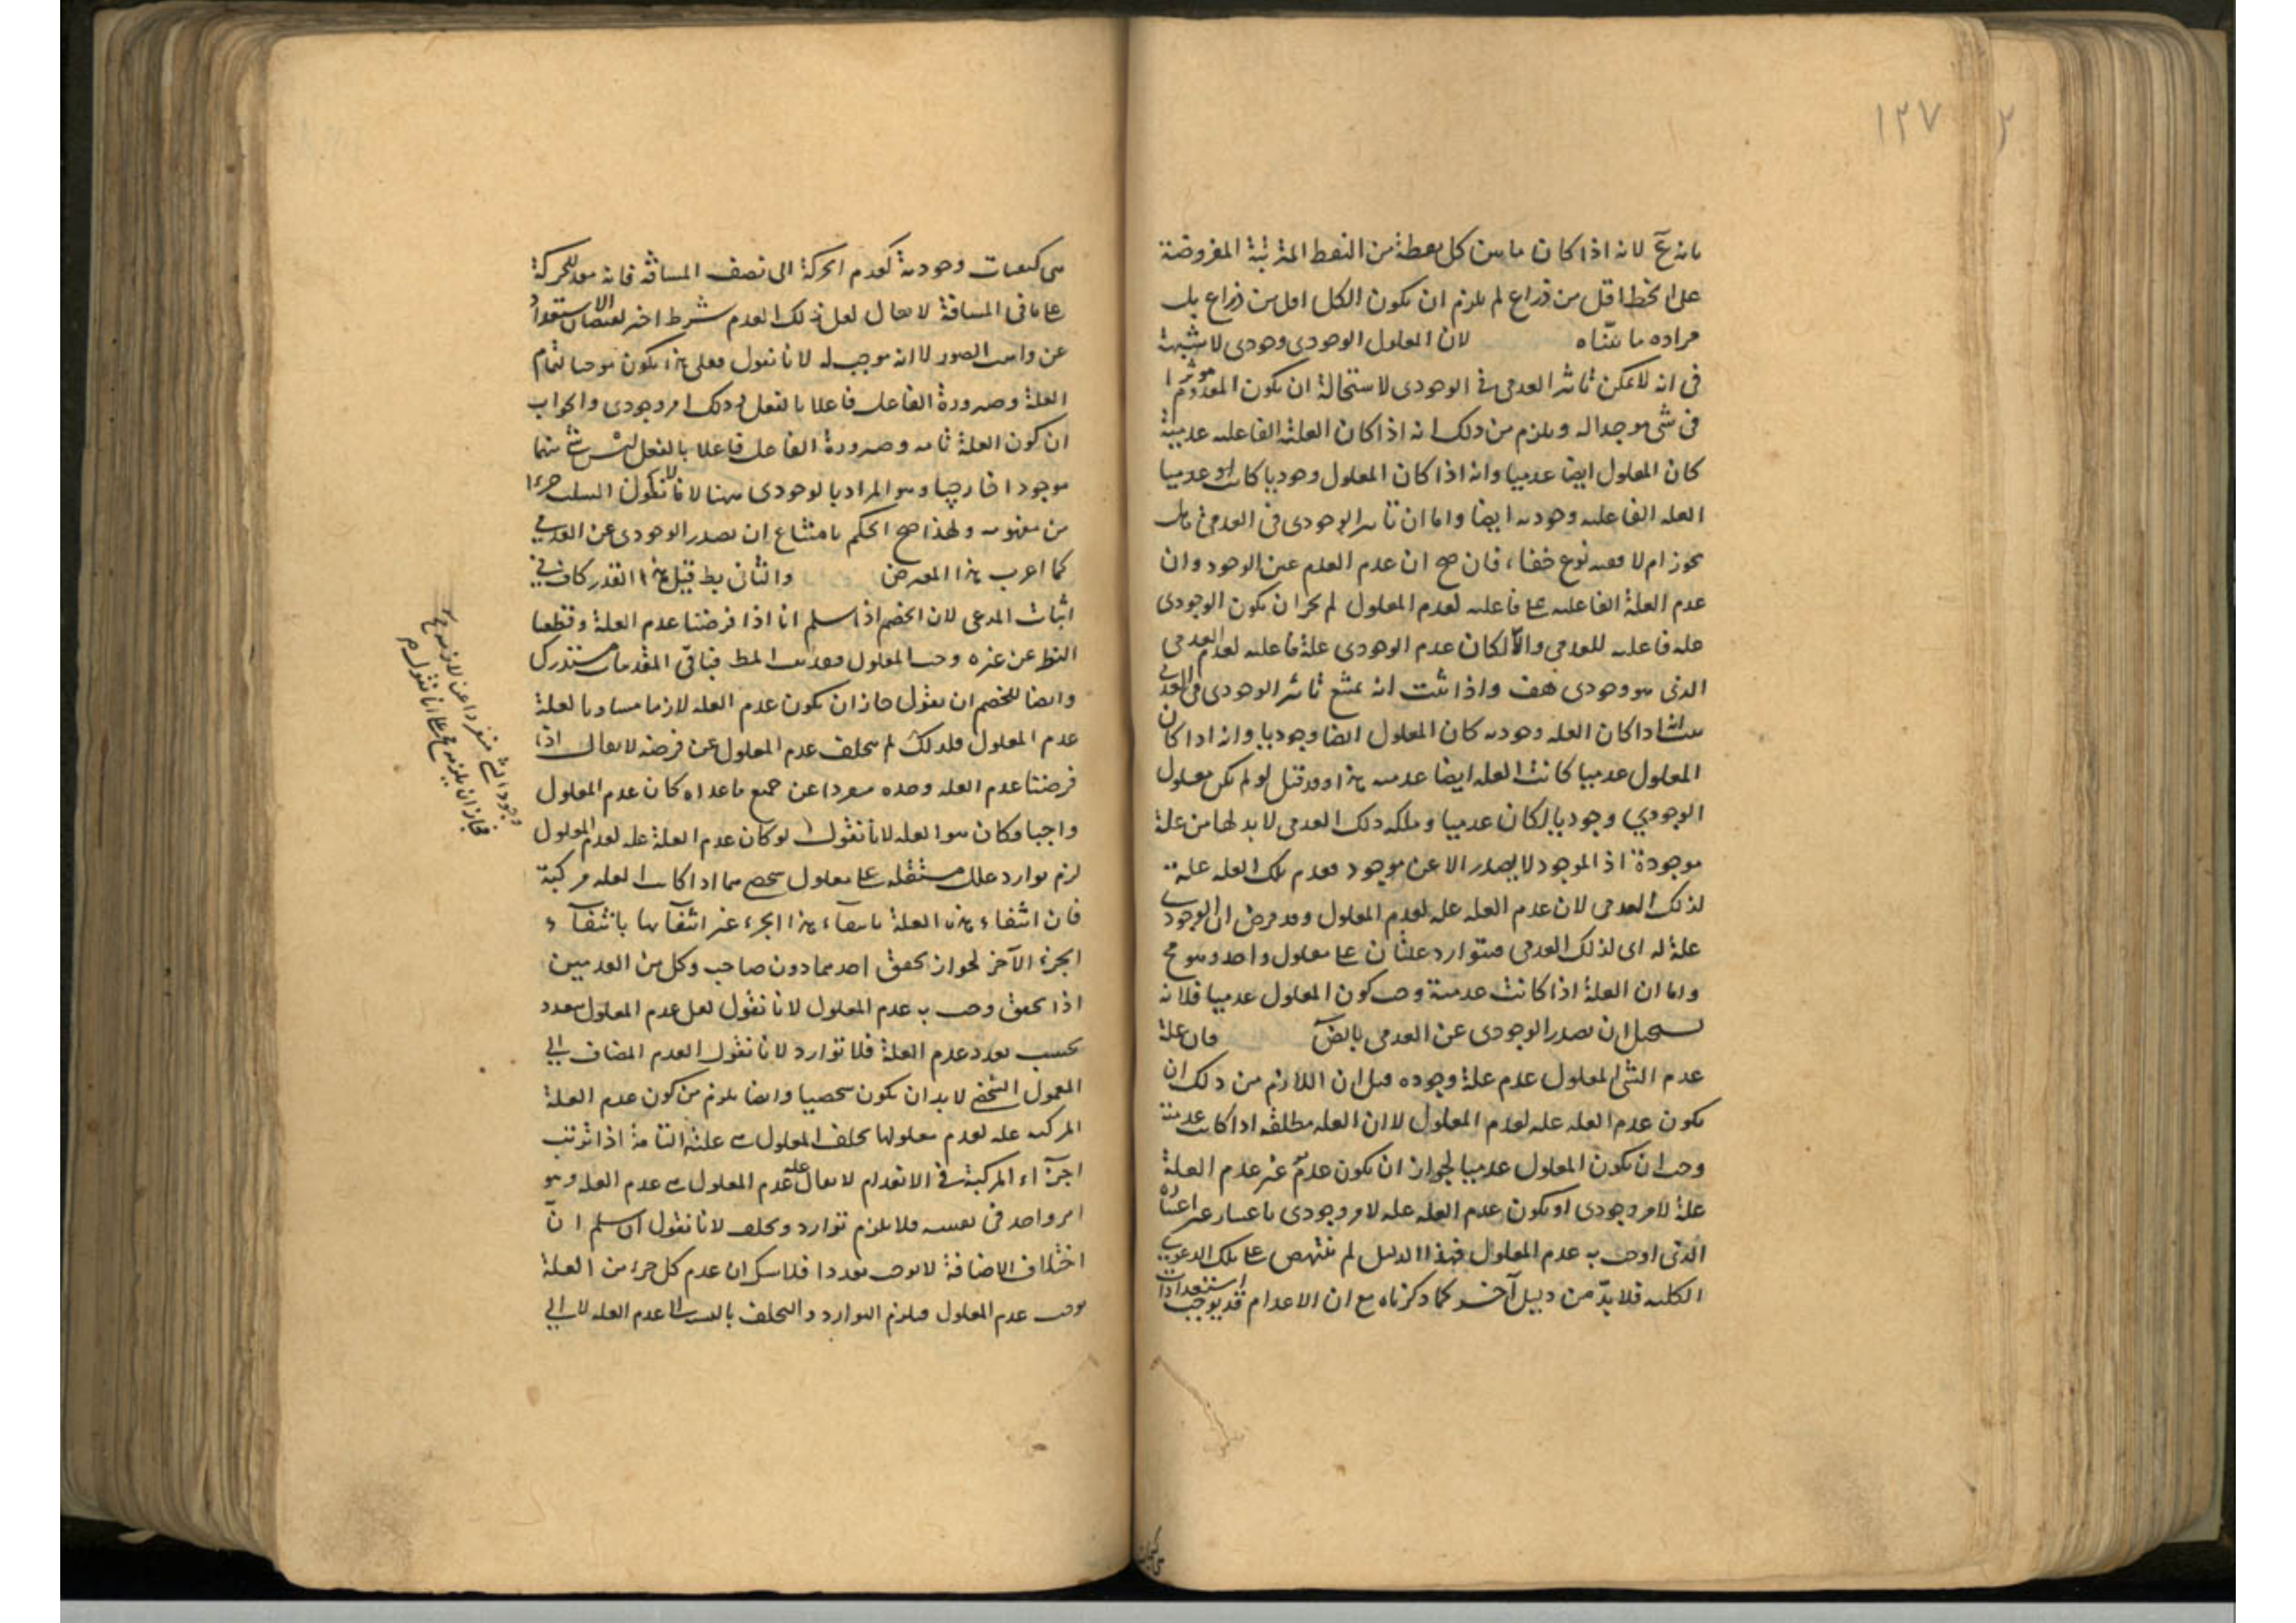 ١٣٧
بانه ع لانه اذا كان ما بين كل نقطة من النقط المترتبة المفروضة
على الخط اقل من ذراع لم يلزم ان يكون الكل اقل من ذراع بل
مراده ما بيّناه لان المعلول الوجودى وجودى لا شبهة
فى انه لا يمكن تاثير العدمى فى الوجودى لاستحالة ان يكون المعدوم موثرا
فى شى موجدا له ويلزم من ذلك انه اذا كان العلة الفاعليه عدمية
كان المعلول ايضا عدميا وانه اذا كان المعلول وجوديا كانت
العله الفاعليه وجوديه ايضا واما ان تاثير الوجودى فى العدمى هل
يجوز ام لا ففيه نوع خفاء فان صح ان عدم العدم عين الوجود وان
عدم العلة الفاعليه علة فاعليه لعدم المعلول لم يجز ان يكون الوجودى
علة فاعليه للعدمى والا لكان عدم الوجودى علة فاعليه لعدم العدمى
الذى هو وجودى هف واذا ثبت انه يمتنع تاثير الوجودى فى العدمى
ثبت انه اذا كان العله وجوديه كان المعلول ايضا وجوديا وانه اذا كان
المعلول عدميا كانت العله ايضا عدميه هذا وقد قيل لو لم يكن معلول
الوجودي وجوديا لكان عدميا وملكه ذلك العدمى لا بد لها من علة
موجودة اذ الموجود لا يصدر الا عن موجود فعدم تلك العله علة
لذلك العدمى لان عدم العله علة لعدم المعلول وقد فرض ان الوجودى
علة له اى لذلك العدمى فتوارد علتان على معلول واحد وهو مح
واما ان العلة اذا كانت عدمية وجب كون المعلول عدميا فلانه
يستحيل ان يصدر الوجودى عن العدمى بالضرورة فان علة
عدم الشى المعلول عدم علة وجوده قيل ان اللازم من ذلك ان
يكون عدم العله علة لعدم المعلول لا ان العله مطلقه اذا كانت عدمية
وجب ان يكون المعلول عدميا لجواز ان يكون عدم غير عدم العلة
علة لامر وجودى او يكون عدم العله علة لامر وجودى باعتبار غير اعتباره
الذى اوجب به عدم المعلول فهذا الدليل لم ينتهض على تلك الدعوى
الكليه فلا بدّ من دليل آخر كما ذكرناه مع ان الاعدام قد يوجب استعدادات
هى كيفيات وجودية كعدم الحركة الى نصف المسافة فانه معد للحركة
على باقى المسافة لا يقال لعل ذلك العدم شرط اخر لفيضان الاستعداد
عن واهب الصور لا انه موجب له لانا نقول فعلى هذا يكون موجبا لتمام
العلة وصيرورة الفاعل فاعلا بالفعل وذلك امر وجودى والجواب
ان كون العلة تامه وصيرورة الفاعل فاعلا بالفعل ليس شئ منهما
موجودا خارجيا وهو المراد بالوجودى ههنا لا ما لا يكون السلب جزءا
من مفهومه ولهذا صح الحكم بامتناع ان يصدر الوجودى عن العدمى
كما اعرف هذا المعرض والثانى بط قيل هذا القدر كاف فى
اثبات المدعى لان الخصم اذا سلم انا اذا فرضنا عدم العلة وقطعنا
النظر عن غيره وجب المعلول فقد ثبت المط فباقى المقدمات مستدرك
وايضا للخصم ان يقول جاز ان يكون عدم العله لازما مساويا لعلة
عدم المعلول فلذلك لم يتخلف عدم المعلول عن فرضه لا يقال اذا
فرضنا عدم العله وحده منفردا عن جميع ما عداه كان عدم المعلول
واجبا فكان هو العله لانا نقول لو كان عدم العلة علة لعدم المعلول
لزم توارد علل مستقله على معلول شخصى فيما اذا كانت العله مركبة
فان انتفاء هذه العلة بانتفاء هذا الجزء غير انتفائها بانتفاء
الجزء الآخر لجواز تحقق احدهما دون صاحبه وكل من العدمين
اذا تحقق وجب به عدم المعلول لانا نقول لعل عدم المعلول متعدد
بحسب تعدد عدم العلة فلا توارد لانا نقول العدم المضاف الى
المعلول الشخصى لا بد ان يكون شخصيا وايضا يلزم من كون عدم العلة
المركبه علة لعدم معلولها تخلف المعلول عن علته التامة اذا ترتب
اجزآء المركبة فى الانعدام لا يقال علة عدم المعلول هى عدم العله وهو
امر واحد فى نفسه فلا يلزم توارد وتخلف لانا نقول ان سلم ان
اختلاف الاضافة لا يوجب تعددا فلا شك ان عدم كل جزء من العلة
يوجب عدم المعلول فيلزم التوارد والتخلف بالنسبة الى عدم العله لا الى
وجود الشئ منفردا عن لازمه مح
فجاز ان يلزمه مح على انا نقول م